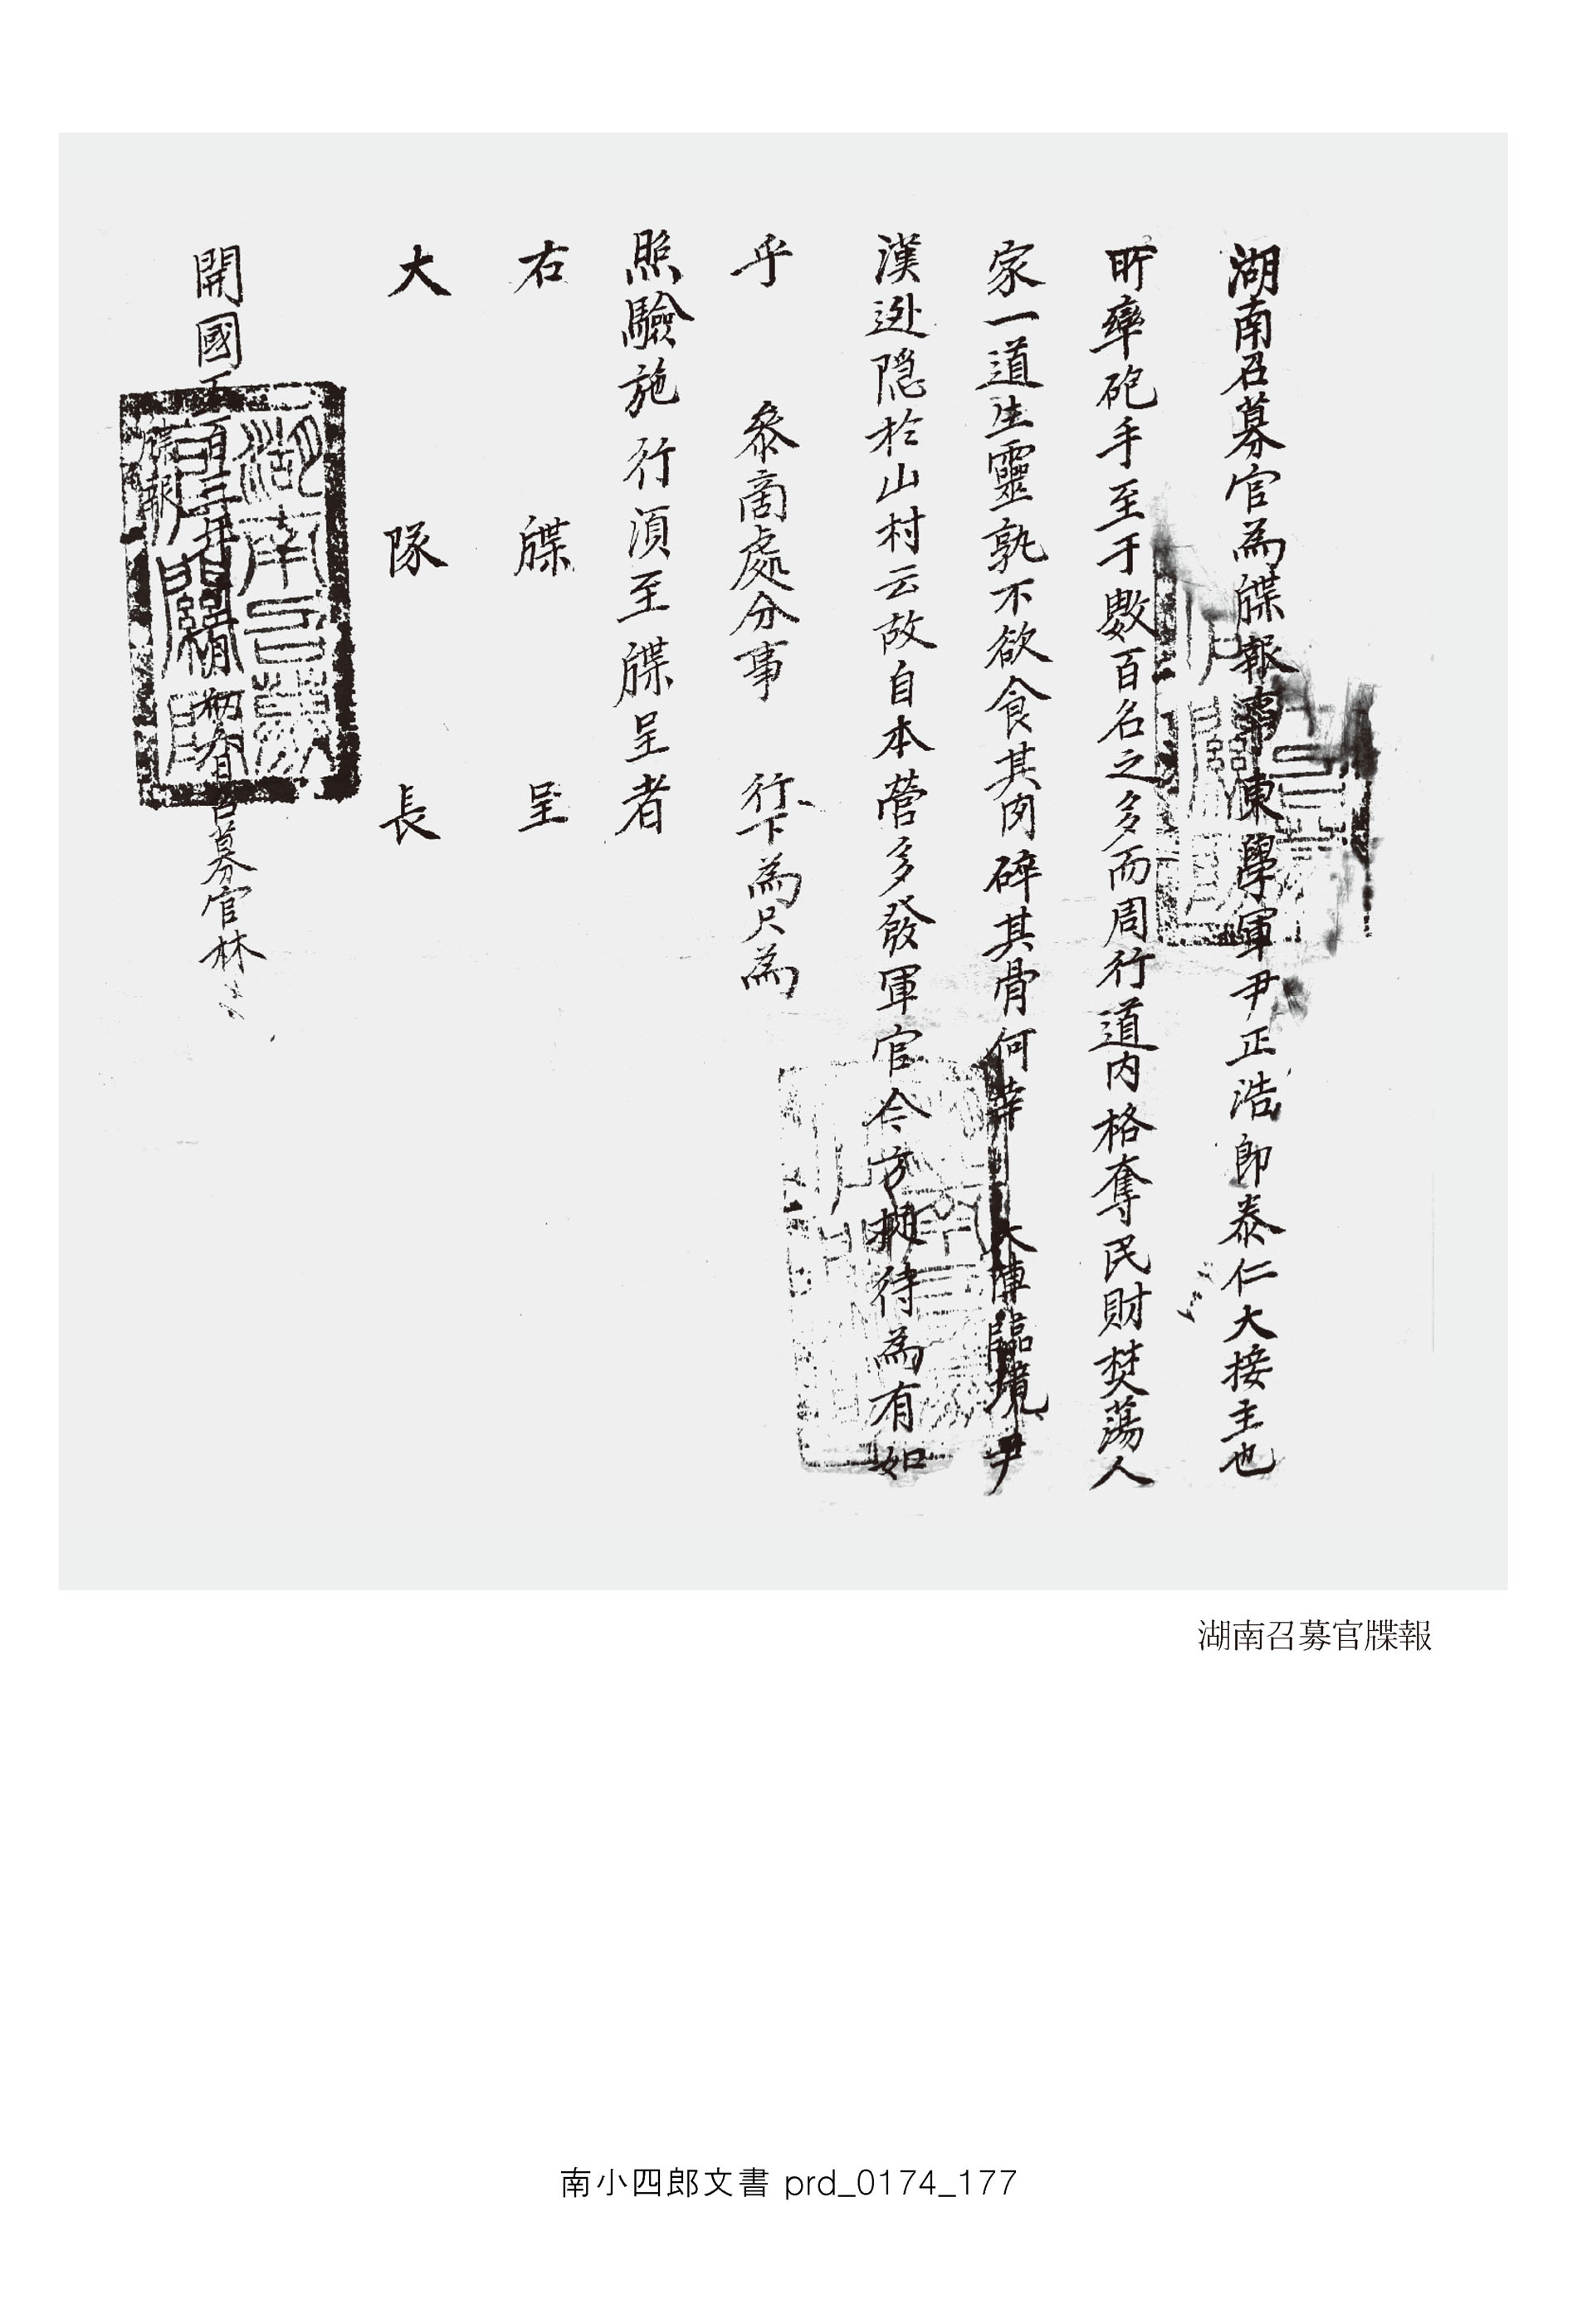 湖南召募官為牒報事東學軍尹正浩卽泰仁大接主也
所率砲手至于數百名之多而周行道內格奪民財焚蕩人
家一道生靈孰不欲食其肉碎其骨何幸 大陣臨境尹
漢逊隱於山村云故自本營多發軍官今方抶待為有如
乎 叅商處分事 行下為只為
照驗施行須至牒呈者
右 牒 呈
大 隊 長
開國五百三年 召募官林
牒報
湖南召募官牒報
南小四郎文書 prd_0174_177